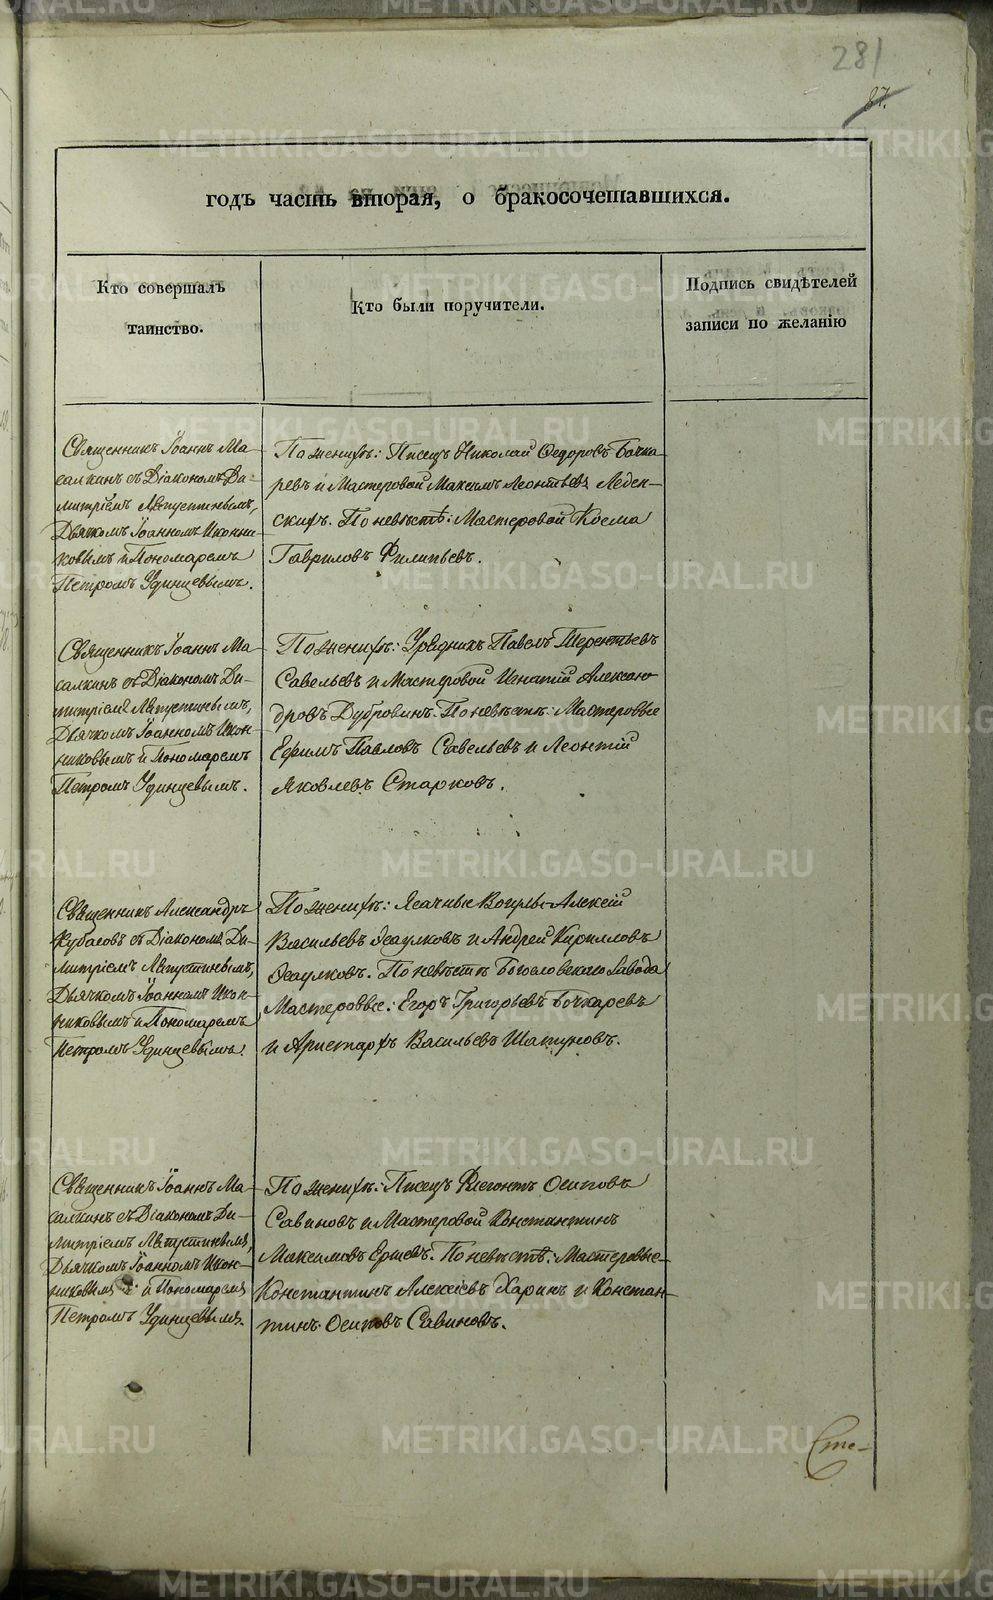 281
87.
годъ часть вторая, о бракосочетавшихся.
Кто совершалъ
таинство.
Кто были поручители.
Подпись свидѣтелей
записи по желанію
Священникъ Іоаннъ Ма-
салкинъ съ Діакономъ Ди-
митріемъ Августиневымъ,
Дьячкомъ Іоанномъ Иконни
ковымъ и Пономаремъ
Петромъ Удинцевымъ.
По женихѣ: Писецъ Николай Ѳедоровъ Бочка-
ревъ и Мастеровой Максимъ Леонтьевъ Леден-
скихъ. По невѣстѣ: Мастеровой Козма
Гавриловъ Филипьевъ.
Священникъ Іоаннъ Ма-
салкинъ съ Діакономъ Ди-
митріемъ Августиневымъ,
Дьячкомъ Іоанномъ Икон-
никовымъ и Пономаремъ
Петромъ Удинцевымъ.
По женихѣ: Урядникъ Павелъ Терентьевъ
Савельевъ и Мастеровой Игнатій Алексан
дровъ Дубровинъ. По невѣстѣ: Мастеровые
Ефимъ Павловъ Савельевъ и Леонтій
Яковлевъ Старковъ.
Священникъ Александръ
Кубасовъ съ Діакономъ Ди-
митріемъ Августиневымъ,
Дьячкомъ Іоанномъ Икон-
никовымъ и Пономаремъ
Петромъ Удинцевымъ.
По женихѣ: Ясачные Вогулы Алексій
Васильевъ Есаулковъ и Андрей Кирилловъ
Есаулковъ. По невѣстѣ Богословскаго Завода
Мастеровые: Егоръ Григорьевъ Бочкаревъ
и Аристархъ Васильевъ Шатуновъ.
Священникъ Іоаннъ Ма-
салкинъ съ Діакономъ Ди-
митріемъ Августиневымъ,
Дьячкомъ Іоанномъ Икон-
никовымъ и Пономаремъ
Петромъ Удинцевымъ.
По женихѣ: Писецъ Флегонтъ Осиповъ
Савиновъ и Мастеровой Константинъ
Максимовъ Ершевъ. По невѣстѣ: Мастеровые
Константинъ Алексѣевъ Харинъ и Констан-
тинъ Осиповъ Савиновъ.
Сте-
METRIKI.GASO-URAL.RU